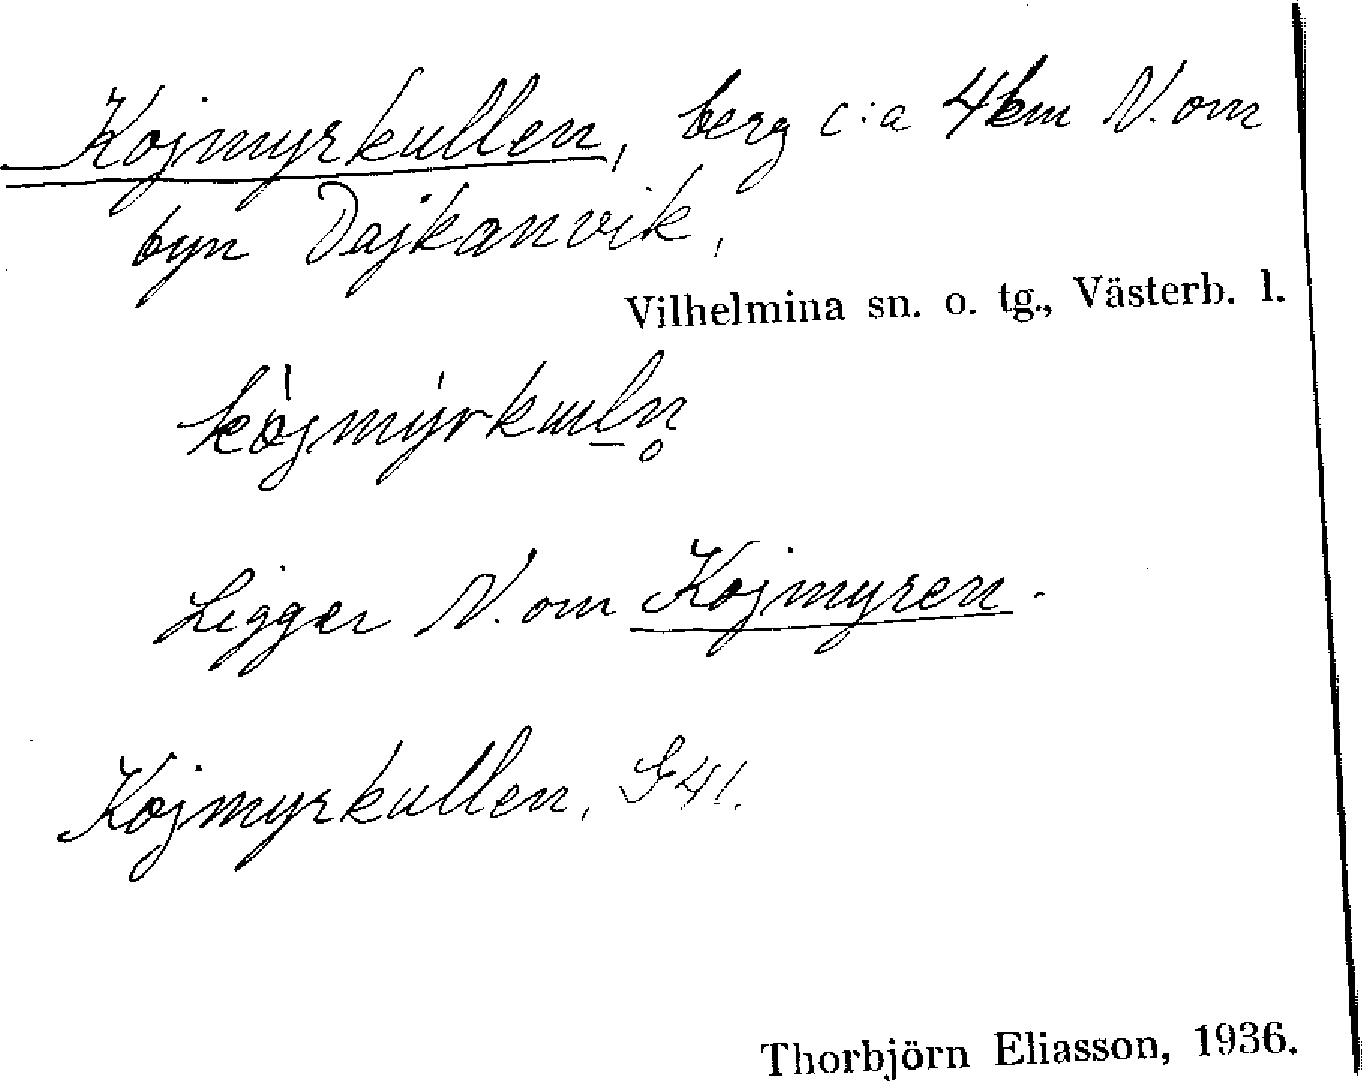 Kojmyrkullen, berg c:a 4km N. om
byn Dajkanvik,
Vilhelmina sn. o. tg., Västerb. l.
Ligger N. om Kojmyren.
Kojmyrkullen, G41.
Thorbjörn Eliasson, 1936.